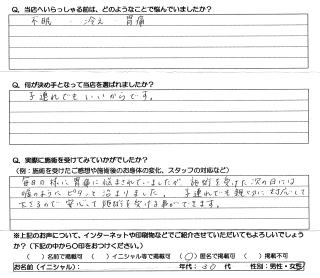 Q. 当店へいらっしゃる前は、どのようなことで悩んでいましたか？
不眠 ・ 冷え ・ 胃痛
Q. 何が決め手となって当店を選ばれましたか？
子連れでもいいからです。
Q. 実際に施術を受けてみていかがでしたか？
(例：施術を受けたご感想や施術後のお身体の変化、スタッフの対応など)
毎日の様に胃痛に悩まされていましたが 施術を受けた次の日には
嘘のようにピタッと治まりました。 子連れでも親切に対応して
下さるので 安心して施術を受ける事ができます。
※上記のお声について、インターネットや印刷物などでご紹介させていただいてもよろしいでしょう
か？（下記の中から○印をおつけください。）
（　）名前で掲載可 （　）イニシャル等で掲載可 （○）匿名で掲載可 （　）掲載不可
お名前（イニシャル）： 年代：30 代 性別：男性・女性